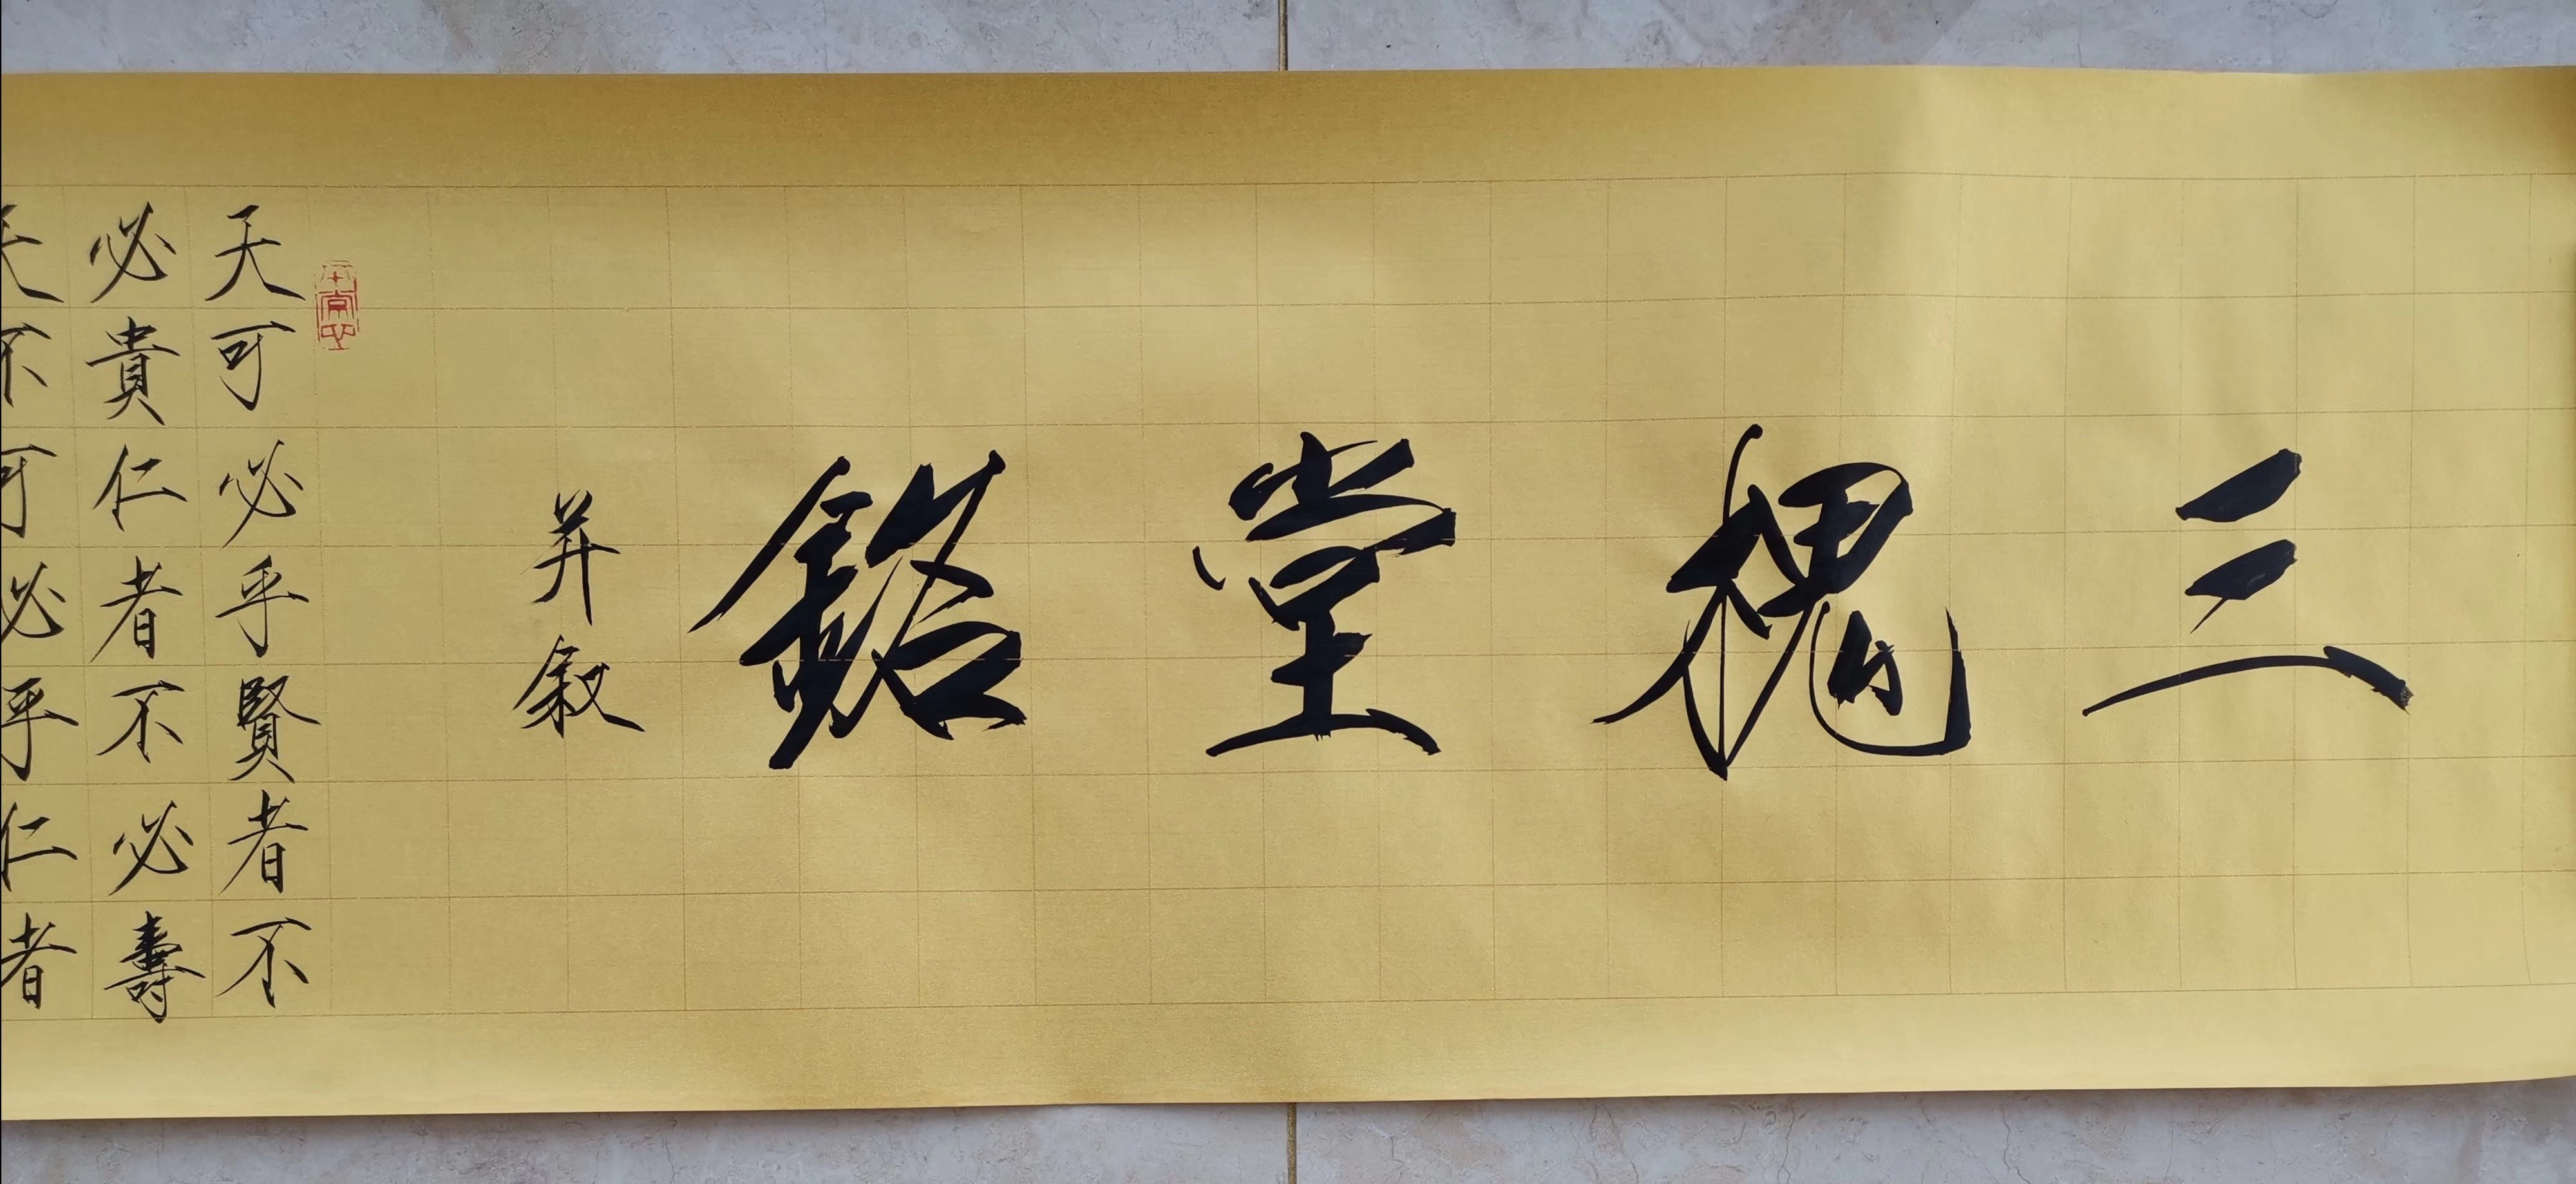 三槐堂銘
并叙
天可必乎賢者不
必貴仁者不必壽
天不可必乎仁者